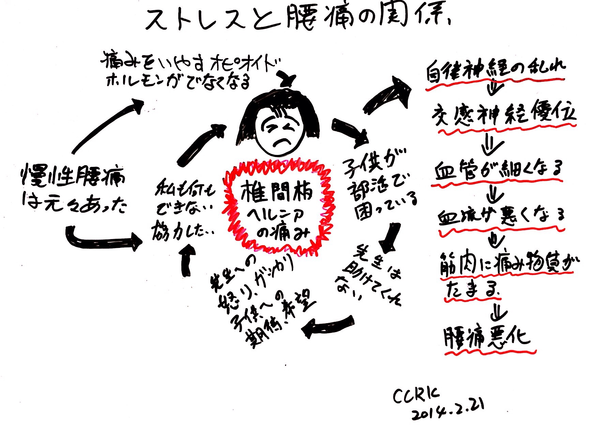 ストレスと腰痛の関係
痛みをいやすオピオイド
ホルモンがでなくなる
慢性腰痛
は元々あった
私も何も
できない
協力した…
椎間板
ヘルニア
の痛み
子供が
部活で
困っている
先生は
助けてくれ
ない
先生への
怒り、ガッカリ
子供への
期待、希望
自律神経の乱れ
交感神経優位
血管が細くなる
血流が悪くなる
筋肉に痛み物質が
たまる
腰痛悪化
CCRK
2014.2.21